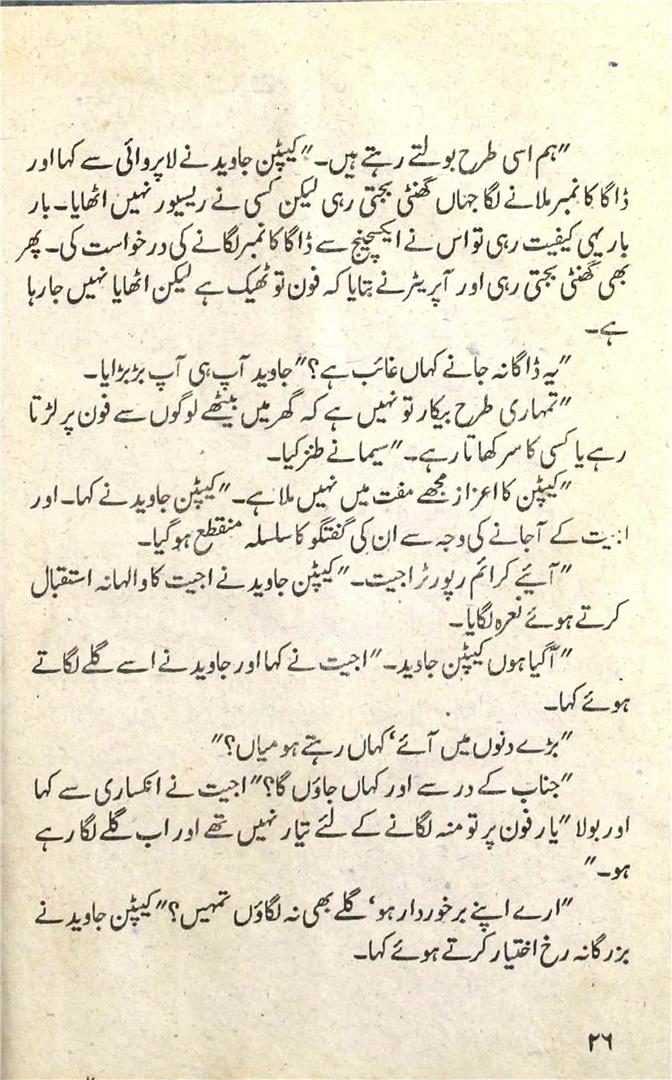 "ہم اسی طرح بولتے رہتے ہیں۔" کیپٹن جاوید نے لاپروائی سے کہا اور
ڈاگا کا نمبر ملانے لگا جہاں گھنٹی بجتی رہی لیکن کسی نے ریسیور نہیں اٹھایا۔ بار
بار یہی کیفیت رہی تو اس نے ایکسچینج سے ڈاگا کا نمبر لگانے کی درخواست کی۔ پھر
بھی گھنٹی بجتی رہی اور آپریٹر نے بتایا کہ فون تو ٹھیک ہے لیکن اٹھایا نہیں جا رہا
ہے۔
"یہ ڈاگا نہ جانے کہاں غائب ہے؟" جاوید آپ ہی آپ بڑبڑایا۔
"تمہاری طرح بیکار تو نہیں ہے کہ گھر میں بیٹھے لوگوں سے فون پر لڑتا
رہے یا کسی کا سر کھاتا رہے۔" سیما نے طنز کیا۔
"کیپٹن کا اعزاز مجھے مفت میں نہیں ملا ہے۔" کیپٹن جاوید نے کہا۔ اور
اجیت کے آ جانے کی وجہ سے ان کی گفتگو کا سلسلہ منقطع ہو گیا۔
"آیئے کرائم رپورٹر اجیت۔" کیپٹن جاوید نے اجیت کا والہانہ استقبال
کرتے ہوئے نعرہ لگایا۔
"آگیا ہوں کیپٹن جاوید۔" اجیت نے کہا اور جاوید نے اسے گلے لگاتے
ہوئے کہا۔
"بڑے دنوں میں آئے، کہاں رہتے ہو میاں؟"
"جناب کے در سے اور کہاں جاؤں گا؟" اجیت نے انکساری سے کہا
اور بولا "یار فون پر تو منہ لگانے کے لئے تیار نہیں تھے اور اب گلے لگا رہے
ہو۔"
"ارے اپنے برخوردار ہو، گلے بھی نہ لگاؤں تمہیں؟" کیپٹن جاوید نے
بزرگانہ رخ اختیار کرتے ہوئے کہا۔
۲۶